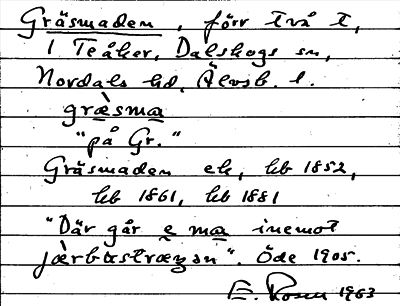 Gräsmaden, förr två t,
i Teåker, Dalskogs sn,
Nordals hd, Älvsb. l.
græ̀sma
"på Gr."
Gräsmaden eh, hb 1852,
hb 1861, hb 1881
"Där går e ma inemot
". Öde 1905.
E. Rosén 1963